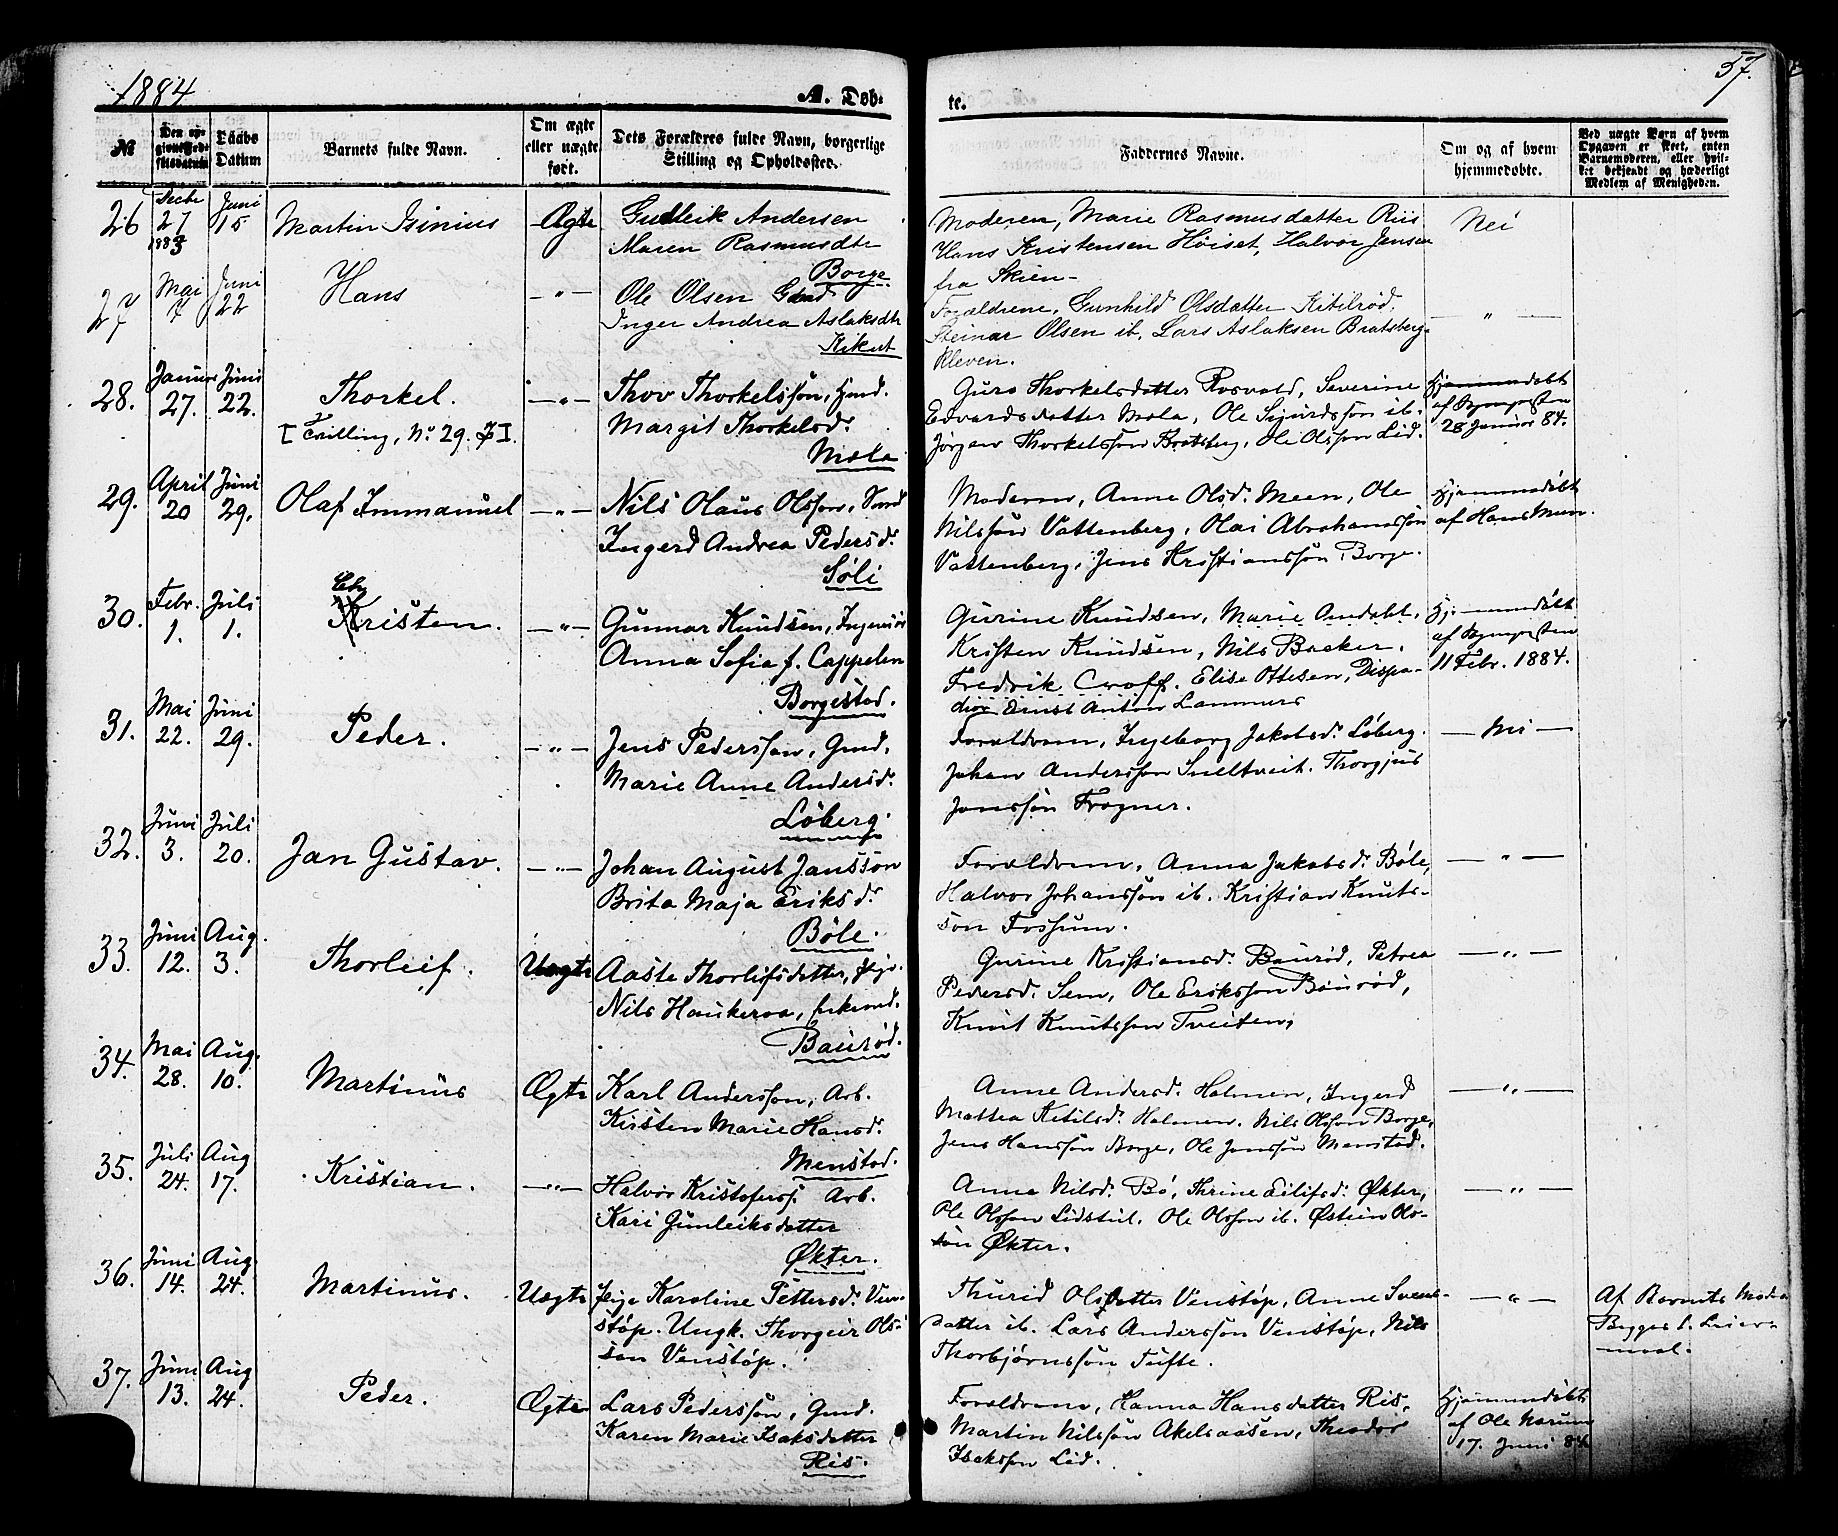 1884
A. Døb-
te.
57.
№
Den op-
givne Fød-
selsdatum
Daabs
Datum
Barnets fulde Navn.
Om ægte
eller uægte
født.
Dets Forældres fulde Navn, borgerlige
Stilling og Opholdssted.
Faddernes Navne.
Om og af hvem
hjemmedøbt.
Ved uægte Barn af hvem
Opgaven er skeet, enten
Barnemoderen, eller hvil-
ket bekjendt og hæderligt
Medlem af Menigheden.
26 Decbr 27 1883 Juni 15 Martin Isinius Ægte Gulleik Andersen
Maren Rasmusdtr
Borge
Moderen, Marie Rasmusdatter Riis
Hans Kristensen Høiset, Halvor Jensen
fra Skien -
Nei
27 Mai 7 Juni 22 Hans - " - Ole Olsen Gmd
Inger Andrea Aslaksdtr
Kikut
Forældrene, Gunhild Olsdatter Kitilrød,
Steinar Olsen ib, Lars Aslaksen Bratsberg-
kleven.
- " -
28. Januar 27. Juni 22. Thorkel. - " - Thov Thorkelssøn, Gmd.
[Tvilling, No 29. 7]. Margit Thorkelsd.
Mæla
Guro Thorkelsdatter Rosvald, Severine
Edvardsdatter Mæla, Ole Sigurdssøn ib.
Jørgen Thorkelssøn Bratsberg, Ole Olssøn Lid.
Hjemmedøbt
af
28 Januar 84.
29. April 20 Juni 29. Olaf Immanuel - " - Nils Olaus Olssøn,
Ingerd Andrea Pedersd.
Søli
Moderen, Anne Olsd. Meen, Ole
Nilssøn Vattenberg, Olai Abrahamssøn
Vattenberg, Jens Kristianssøn Borge.
Hjemmedøbt
af Hans Meen.
30. Febr. 1. Juli 1. Ch
Kristen. - " - Gunnar Knudsen, Ingeniør
Anna Sofia f. Cappelen
Borgestad.
Gurine Knudsen, Marie
Kristen Knudsen, Nils Backer.
Fredrik Croff. Elise Ottesen, Dispa-
chør Ernst Anton Lammers
Hjemmedøbt
af
11 Febr. 1884.
31. Mai 22. Juni 29. Peder. - " - Jens Pederssøn, Gmd.
Marie Anne Andersd.
Løberg.
Forældrene, Ingeborg Jakobsd. Løberg.
Johan Anderssøn Sneltveit. Thorgjus
Jonssøn Frogner.
- Nei -
32. Juni 3. Juli 20. Jan Gustav. - " - Johan August Jansson
Brita Maja Eriksd.
Bøle.
Forældrene, Anna Jakobsd. Bøle,
Halvor Johanssøn ib. Kristian Knuts-
søn Fossum.
- " -
33. Juni 12. Aug. 3. Thorleif. Uægte Aaste Thorleifsdatter, Pige.
Nils Haukeraa, Enkemd.
Baurød.
Gurine Kristiansd. Baurød, Petrea
Pedersd. Sem, Ole Erikssøn Baurød,
Knut Knutssøn Tveiten,
- " -
34. Mai 28. Aug. 10. Martinus Ægte Karl Anderssøn, Arb.
Kirsten Marie Hansd.
Menstad.
Anne Andersd. Holmen, Ingerd
Mattea Ketilsd. Holmen. Nils Olssøn Borge,
Jens Hanssøn Borge, Ole Jonssøn Menstad.
- " -
35. Juli 24. Aug 17. Kristian. - " - Halvor Kristoferss. Arb.
Kari Gunleiksdatter
Økter.
Anna Nilsd. Bø, Thrine Eilifsd. Økter,
Ole Olssøn Lidstul. Ole Olssøn ib. Østein Ols-
søn Økter.
- " -
36. Juni 14. Aug 24. Martinus. Uægte Pige Karoline Pettersd. Ven-
støp. Ungk. Thorgeir Ols-
søn Venstøp.
Thurid Olsdatter Venstøp, Anne Svens-
datter ib. Lars Anderssøn Venstøp, Nils
Thorbjørnssøn Tufte.
- " -
Af Barnets Moder
Begges 1. Leier-
maal.
37. Juni 13. Aug 24. Peder. Ægte Lars Pederssøn, Gmd.
Karen Marie Isaksdatter
Ris.
Forældrene, Hanna Hansdatter Ris,
Martin Nilssøn Akelsaasen, Theodor
Isakssøn Lid.
Hjemmedøbt
af Ole Narum
17. Juni 84